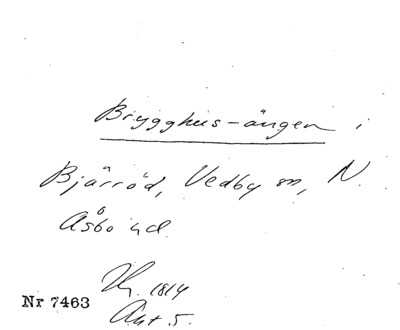 Brygghus-ängen i
Bjärröd, Vedby sn, N.
Åsbo hd.
1814
Nr 7463
Akt 5.